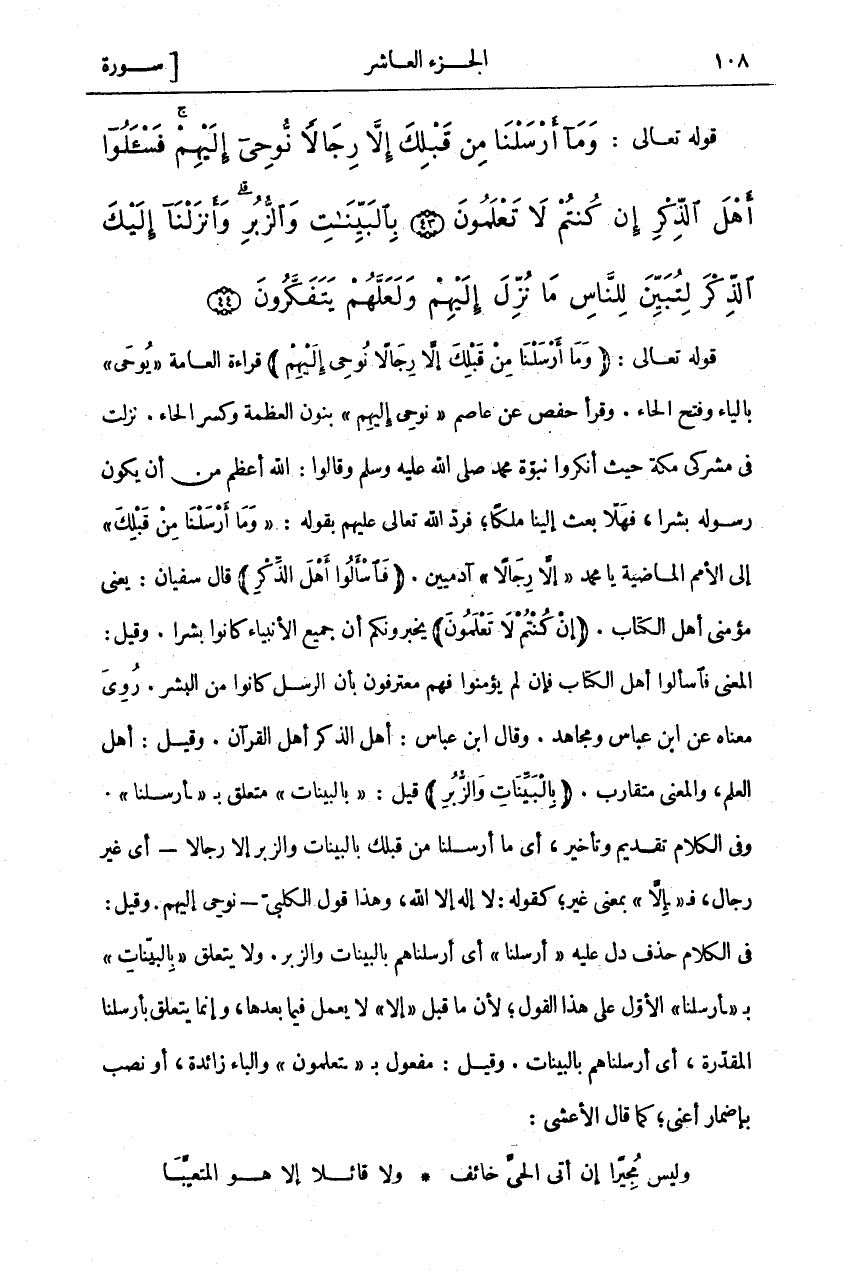 ١٠٨ الجـــزء العـاشر [ ســـورة
قوله تعـالى : وَمَآ أَرْسَلْنَا مِن قَبْلِكَ إِلَّا رِجَالًا نُّوحِىٓ إِلَيْهِمْ ۚ فَسْـَٔلُوٓا۟
أَهْلَ ٱلذِّكْرِ إِن كُنتُمْ لَا تَعْلَمُونَ ﴿٤٣﴾ بِٱلْبَيِّنَـٰتِ وَٱلزُّبُرِ ۗ وَأَنزَلْنَآ إِلَيْكَ
ٱلذِّكْرَ لِتُبَيِّنَ لِلنَّاسِ مَا نُزِّلَ إِلَيْهِمْ وَلَعَلَّهُمْ يَتَفَكَّرُونَ ﴿٤٤﴾
قوله تعـالى : ﴿ وَمَا أَرْسَلْنَا مِنْ قَبْلِكَ إِلَّا رِجَالًا نُوحِى إِلَيْهِمْ ﴾ قراءة العـامة «يُوحَى»
بالياء وفتح الحاء . وقرأ حفص عن عاصم « نوحى إليهم » بنون العظمة وكسر الحاء . نزلت
فى مشركى مكة حيث أنكروا نبوّة محمد صلى الله عليه وسلم وقالوا : الله أعظم من أن يكون
رســوله بشرا ، فهَلّا بعث إلينا ملكًا ؛ فردّ الله تعالى عليهم بقوله : « وَمَا أَرْسَلْنَا مِنْ قَبْلِكَ»
إلى الأمم المـاضية يا محمد « إِلَّا رِجَالًا » آدميين . ﴿ فَٱسْأَلُوا أَهْلَ الذِّكْرِ ﴾ قال سفيان : يعنى
مؤمنى أهل الكتاب . ﴿إِنْ كُنْتُمْ لَا تَعْلَمُونَ﴾ يخبرونكم أن جميع الأنبياء كانوا بشرا . وقيل :
المعنى فٱسألوا أهل الكتاب فإن لم يؤمنوا فهم معترفون بأن الرســل كانوا من البشر . رُوِىَ
معناه عن ابن عباس ومجاهد . وقال ابن عباس : أهل الذكر أهل القرآن . وقيــل : أهل
العلم ، والمعنى متقارب . ﴿ بِالْبَيِّنَاتِ وَالزُّبُرِ ﴾ قيل : « بالبينات » متعلق بـ « ـأرســلنا » .
وفى الكلام تقـديم وتأخير ، أى ما أرســلنا من قبلك بالبينات والزبر إلا رجالا — أى غير
رجال ، فـ«ـإِلّا » بمعنى غير ؛ كقوله : لا إله إلا الله ، وهذا قول الكلبىّ — نوحى إليهم . وقيل :
فى الكلام حذف دل عليه « أرسلنا » أى أرسلناهم بالبينات والزبر . ولا يتعلق « بِالبيّناتِ »
بـ «ـأرسلنا» الأوّل على هذا القول ؛ لأن ما قبل «إلا» لا يعمل فيما بعدها ، وإنما يتعلق بأرسلنا
المقدّرة ، أى أرسلناهم بالبينات . وقيــل : مفعول بـ « ـتعلمون » والباء زائدة ، أو نصب
بإضمار أعنى ؛ كما قال الأعشى :
وليس مُجِيرًا إن أتى الحىَّ خائف * ولا قائـــلا إلا هـــو المتعيَّبـَـا